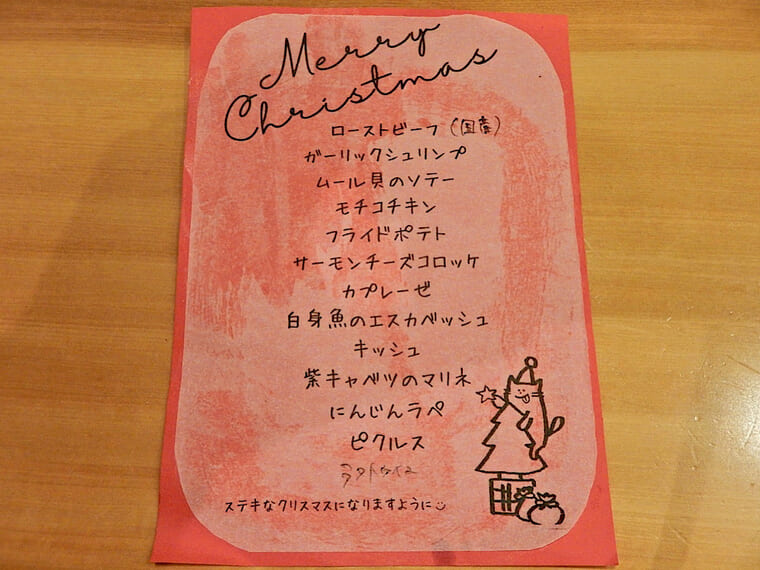 Merry
Christmas
ローストビーフ（国産）
ガーリックシュリンプ
ムール貝のソテー
モチコチキン
フライドポテト
サーモンチーズコロッケ
カプレーゼ
白身魚のエスカベッシュ
キッシュ
紫キャベツのマリネ
にんじんラペ
ピクルス
ラタトゥイユ
ステキなクリスマスになりますように